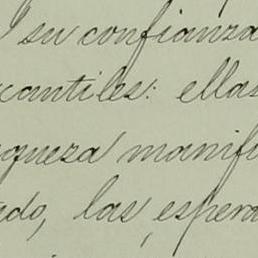 su confianza
cantiles: ellas
queza manif
ado, las espera